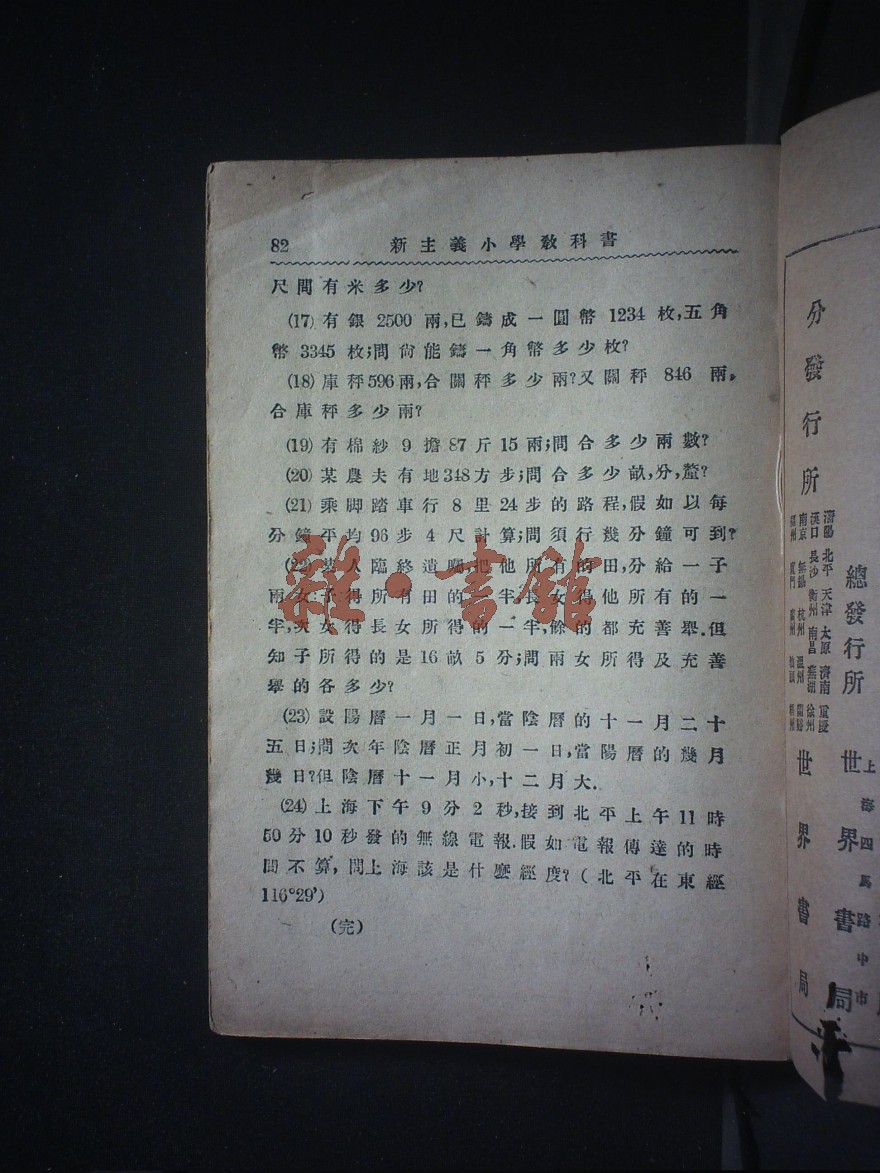 82 新主義小學教科書
尺問有米多少?
(17) 有銀 2500 兩,已鑄成一圓幣 1234 枚,五角
幣 3345 枚;問尙能鑄一角幣多少枚?
(18) 庫秤596兩,合關秤多少兩?又關秤 846 兩,
合庫秤多少兩?
(19) 有棉紗 9 擔 87 斤 15 兩;問合多少兩數?
(20) 某農夫有地348方步;問合多少畝,分,釐?
(21) 乘脚踏車行 8 里 24 步的路程,假如以每
分鐘平均96步 4 尺計算;問須行幾分鐘可到?
(22) 某人臨終遺囑,把他所有的田,分給一子
兩女:子得所有田的一半,長女得他所有的一
半,次女得長女所得的一半,餘的都充善舉.但
知子所得的是16畝 5 分;問兩女所得及充善
舉的各多少?
(23) 設陽曆一月一日,當陰曆的十一月二十
五日;問次年陰曆正月初一日,當陽曆的幾月
幾日?但陰曆十一月小,十二月大.
(24) 上海下午 9 分 2 秒,接到北平上午 11 時
50 分 10 秒發的無線電報.假如電報傳達的時
間不算,問上海該是什麼經度?(北平在東經
116°29′)
(完)
雜·書館
分發行所
瀋陽 北平 天津 太原 濟南 重慶
漢口 長沙 衡州 南昌 蕪湖 徐州
南京 無錫 杭州 溫州
總發行所
上海四馬路中市
世界書局
世界書局